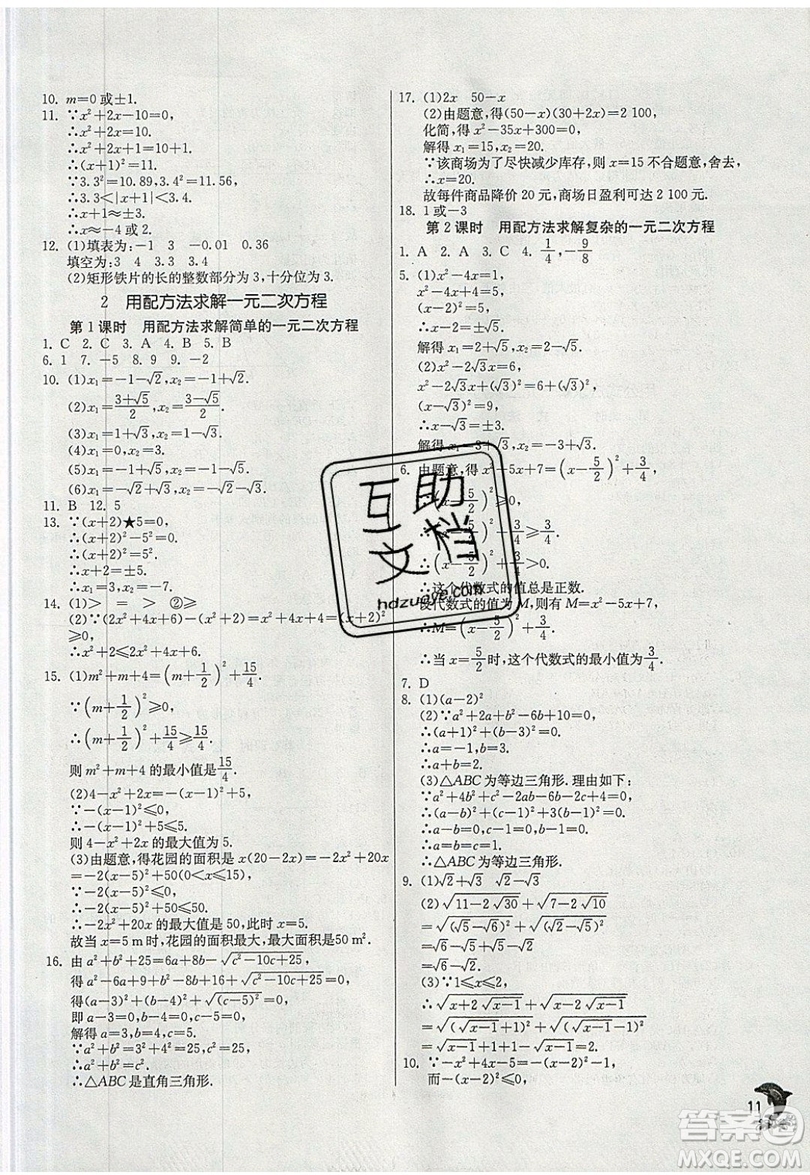 10. m=0或±1.
11. ∵x²+2x-10=0,
∴x²+2x=10.
∴x²+2x+1=10+1.
∴(x+1)²=11.
∵3.3²=10.89,3.4²=11.56.
∴3.3<|x+1|<3.4.
∴x+1≈±3.3.
∴x≈-4或2.
12. (1)填表为:-1 3 -0.01 0.36
填空为:3 4 3.3 3.4
(2)矩形铁片的长的整数部分为3,十分位为3.
2 用配方法求解一元二次方程
第1课时 用配方法求解简单的一元二次方程
1. C 2. C 3. A 4. B 5. B
6. 1 7. -5 8. 9 9. -2
10. (1)x₁=-1-√2,x₂=-1+√2.
(2)x₁=(3+√5)/2,x₂=(3-√5)/2.
(3)x₁=1,x₂=-3.
(4)x₁=0,x₂=2.
(5)x₁=-1-√2,x₂=-1+√2.
(6)x₁=-√2+√3,x₂=-√2-√3.
11. B 12. 5
13. ∵(x+2)★5=0,
∴(x+2)²-5²=0.
∴x+2=±5.
∴x₁=3,x₂=-7.
14. (1)> = > ②≥
(2)∵(2x²+4x+6)-(x²+2)=x²+4x+4=(x+2)²
≥0,
∴x²+2≤2x²+4x+6.
15. (1)m²+m+4=(m+1/2)²+15/4.
∵(m+1/2)²≥0,
∴(m+1/2)²+15/4≥15/4.
则m²+m+4的最小值是15/4.
(2)4-x²+2x=-(x-1)²+5,
∵-(x-1)²≤0,
∴-(x-1)²+5≤5.
则4-x²+2x的最大值为5.
(3)由题意,得花园的面积是x(20-2x)=-2x²+20x
=-2(x-5)²+50,
∵-2(x-5)²≤0,
∴-2(x-5)²+50≤50.
∴-2x²+20x的最大值是50,此时x=5.
故当x=5 m时,花园的面积最大,最大面积是50 m².
16. 由a²+b²+25=6a+8b-√(c²-10c+25),
得a²-6a+9+b²-8b+16+√(c²-10c+25)=0,
得(a-3)²+(b-4)²+√((c-5)²)=0,
即a-3=0,b-4=0,c-5=0,
解得a=3,b=4,c=5.
∵a²+b²=3²+4²=25=5²=c²,
∴a²+b²=c².
∴△ABC是直角三角形.
17. (1)2x 50-x
(2)由题意,得(50-x)(30+2x)=2 100,
化简,得x²-35x+300=0,
解得x₁=15,x₂=20.
∵该商场为了尽快减少库存,则x=15不合题意,舍去,
∴x=20.
故每件商品降价20元,商场日盈利可达2 100元.
18. 1或-3
第2课时 用配方法求解复杂的一元二次方程
1. A 2. A 3. C 4. 1/4,-9/8
5. (1)x²-4x=1,
x²-4x+4=5,
(x-2)²=5,
∴x-2=±√5.
(2)x²-2√3x=6,
x²-2√3x+(√3)²=6+(√3)²,
(x-√3)²=9,
∴x-√3=±3.
6. 由题意,得x²-5x+7=(x-5/2)²+3/4,
∴这个代数式的值总是正数.
设代数式的值为M,则有M=x²-5x+7,
∴M=(x-5/2)²+3/4.
∴当x=5/2时,这个代数式的最小值为3/4.
7. D
8. (1)(a-2)²
(2)∵a²+2a+b²-6b+10=0,
∴(a+1)²+(b-3)²=0.
∴a=-1,b=3.
∴a+b=2.
(3)△ABC为等边三角形.理由如下:
∵a²+4b²+c²-2ab-6b-2c+4=0,
∴(a-b)²+(c-1)²+3(b-1)²=0.
∴a-b=0,c-1=0,b-1=0.
∴a=b=c=1.
∴△ABC为等边三角形.
9. (1)√2+√3 √2-√3
(2)√(11-2√30)+√(7-2√10)
=√((√6-√5)²)+√((√5-√2)²)
=√6-√5+√5-√2
=√6-√2.
(3)∵1≤x≤2,
∴√(x+2√(x-1))+√(x-2√(x-1))
=√((√(x-1)+1)²)+√((√(x-1)-1)²)
=√(x-1)+1+1-√(x-1)=2.
10. ∵-x²+4x-5=-(x-2)²-1,
而-(x-2)²≤0,
11
互助
文档
hdzuaye.com
答案圈
MXQE.COM